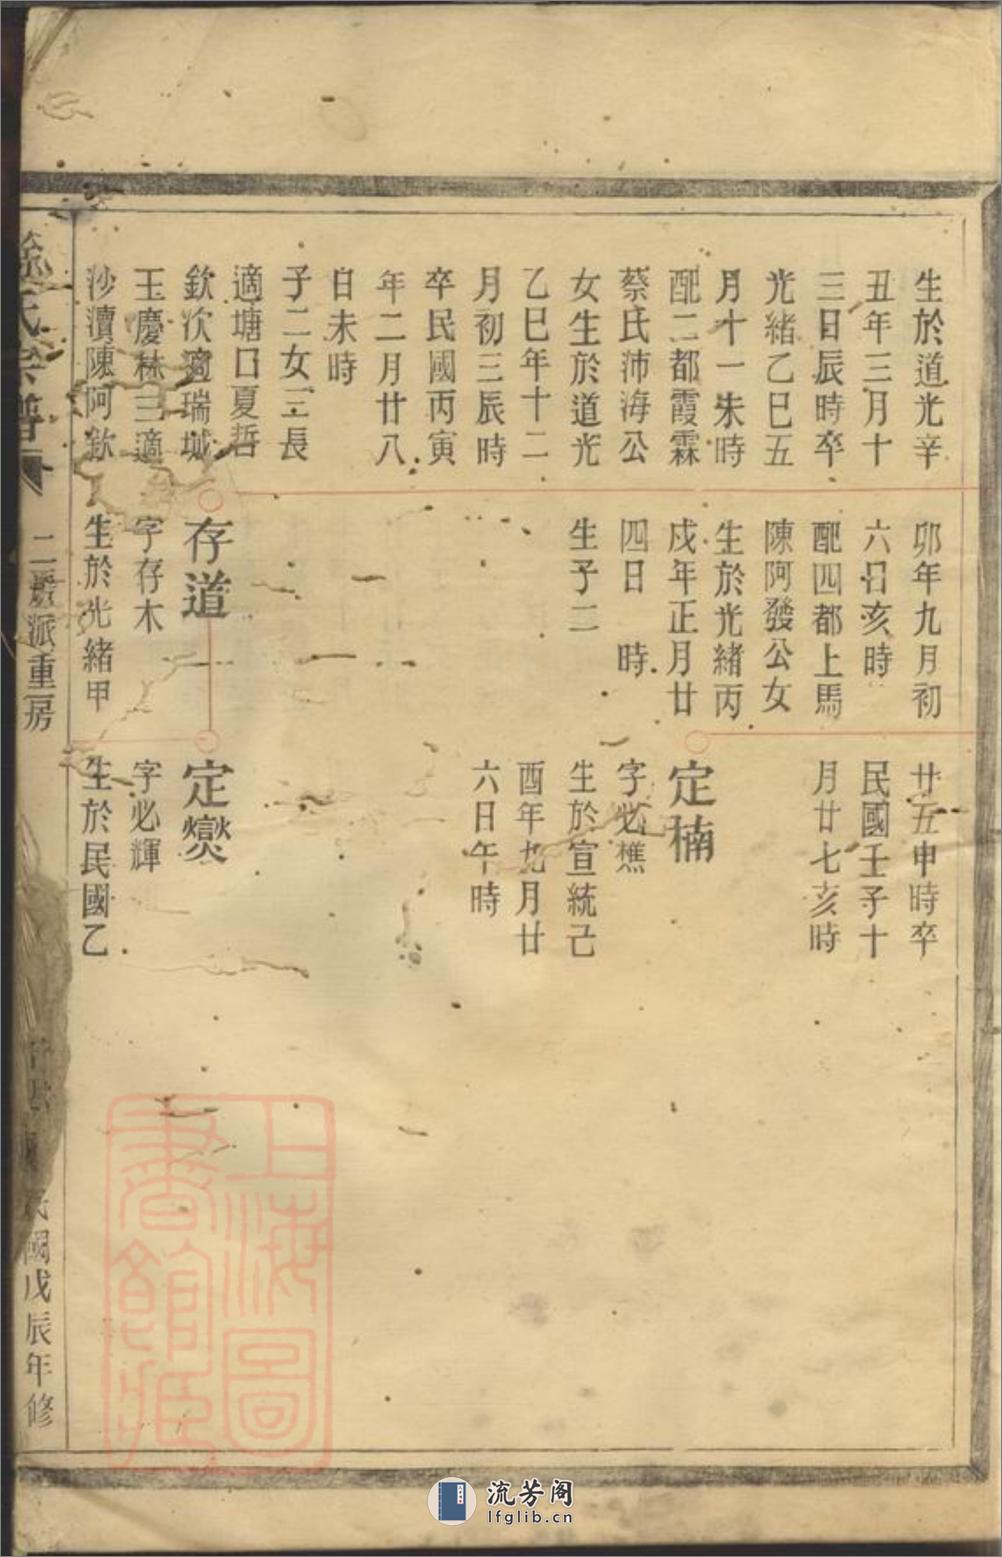 生於道光辛
丑年三月十
三日辰時卒
光緒乙巳五
月十一未時
配二都霞霖
蔡氏沛海公
女生於道光
乙巳年十二
月初三辰時
卒民國丙寅
年二月廿八
日未時
子二女三長
適塘口夏哲
欽次適瑞城
玉慶林三適
沙瀆陳阿欽
卯年九月初
六日亥時
配四都上馬
陳阿發公女
生於光緒丙
戍年正月廿
四日　時
生子二
存道
字存木
生於光緒甲
廿五申時卒
民國壬子十
月廿七亥時
定楠
字必樵
生於宣統己
酉年九月廿
六日午時
定爕
字必輝
生於民國乙
氏宗譜
二房派重房
民國戊辰年修
上海圖
書館藏
流芳阁
lfglib.cn